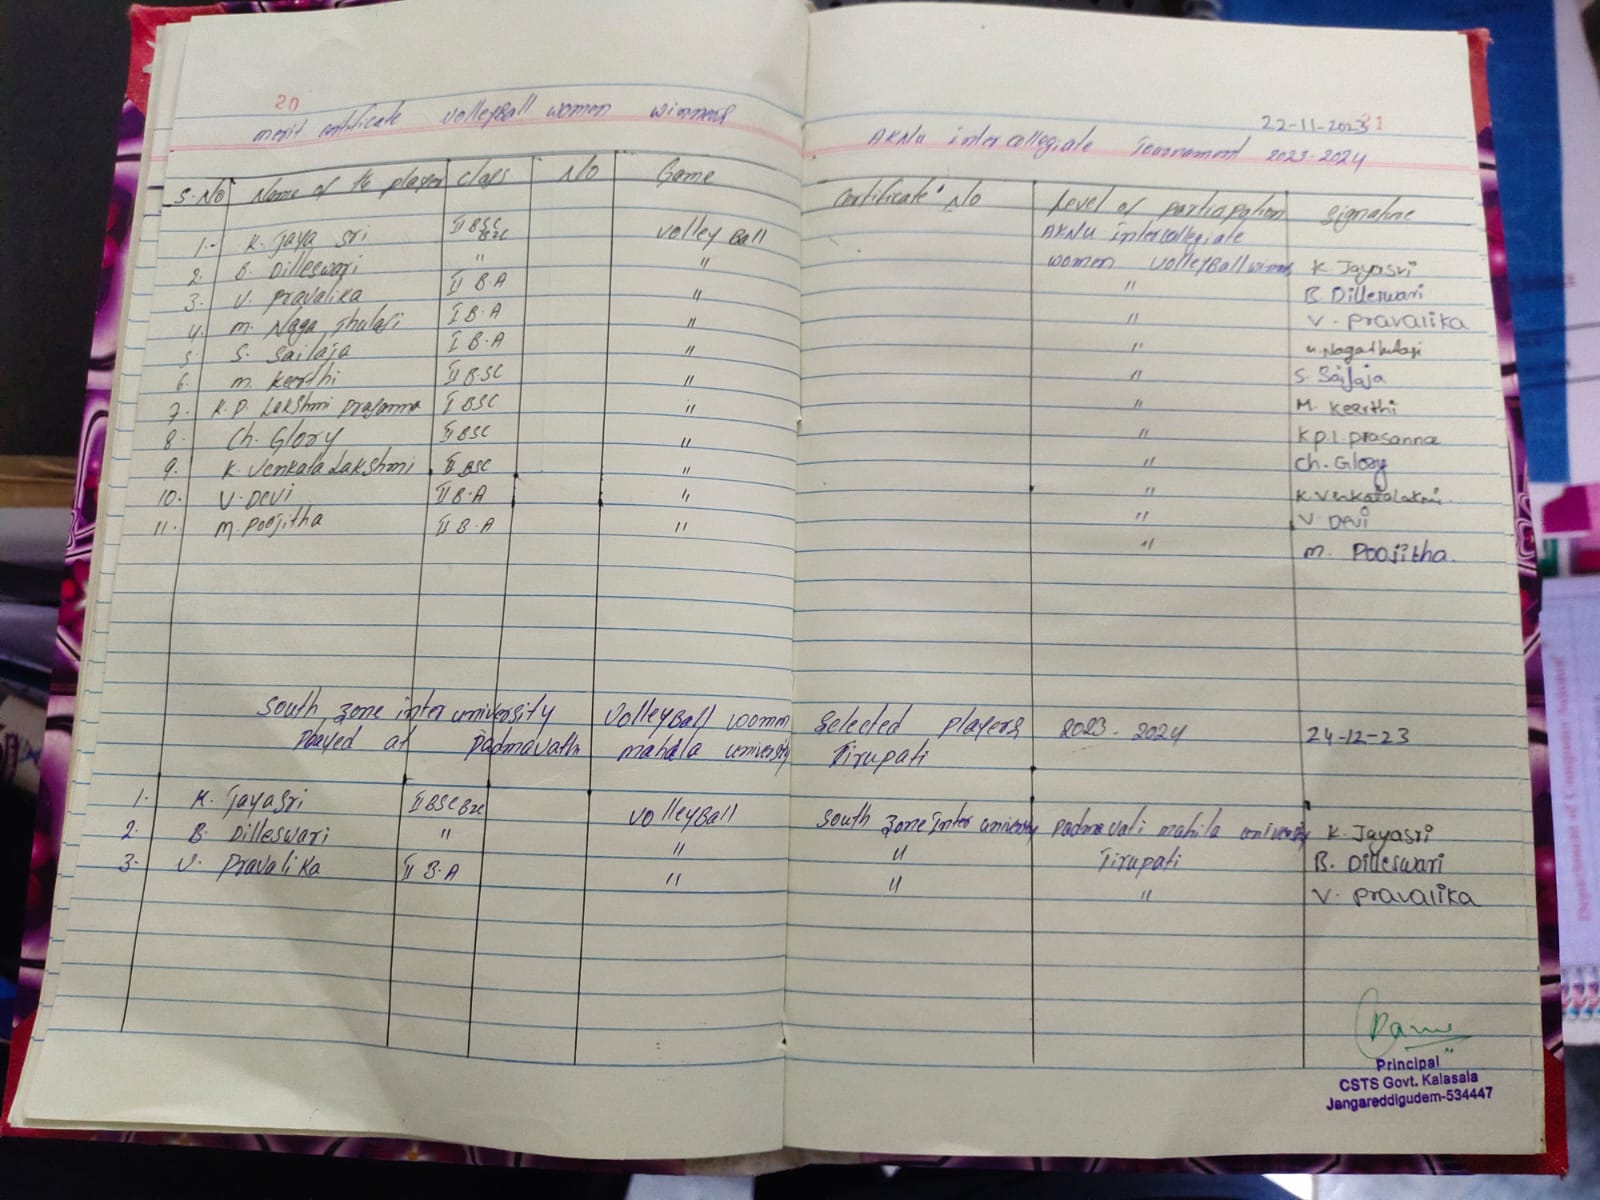 20
merit certificate volleyBall women winners
S.No Name of the player class No Game
1. K. Jaya Sri II BSC BZC volley Ball
2. B. Dilleswari " "
3. V. Pravalika II B.A "
4. M. Naga thulasi I B.A "
5. S. Sailaja I B.A "
6. M. Keerthi II B.SC "
7. K.P. Lakshmi prasanna I BSC "
8. Ch. Glory II BSC "
9. K. Venkata Lakshmi II BSC "
10. V. Devi II B.A "
11. M. Poojitha II B.A "
22-11-2023 21
AKNU intercollegiate Tournament 2023-2024
Certificate No Level of participation Signature
AKNU intercollegiate
women volleyBall K. Jayasri
" B. Dilleswari
" V. Pravalika
" M. Nagathulasi
" S. Sailaja
" M. Keerthi
" K.P.L. prasanna
" Ch. Glory
" K. Venkatalakshmi
" V. Devi
" M. Poojitha.
South zone inter university VolleyBall women Selected players 2023-2024 24-12-23
Played at padmavathi mahala university Tirupati
1. K. Jayasri II BSC BZC VolleyBall South zone inter university Padmavati mahila university K. Jayasri
2. B. Dilleswari " " " Tirupati B. Dilleswari
3. V. Pravalika II B.A " " " V. Pravalika
Principal
CSTS Govt. Kalasala
Jangareddigudem-534447